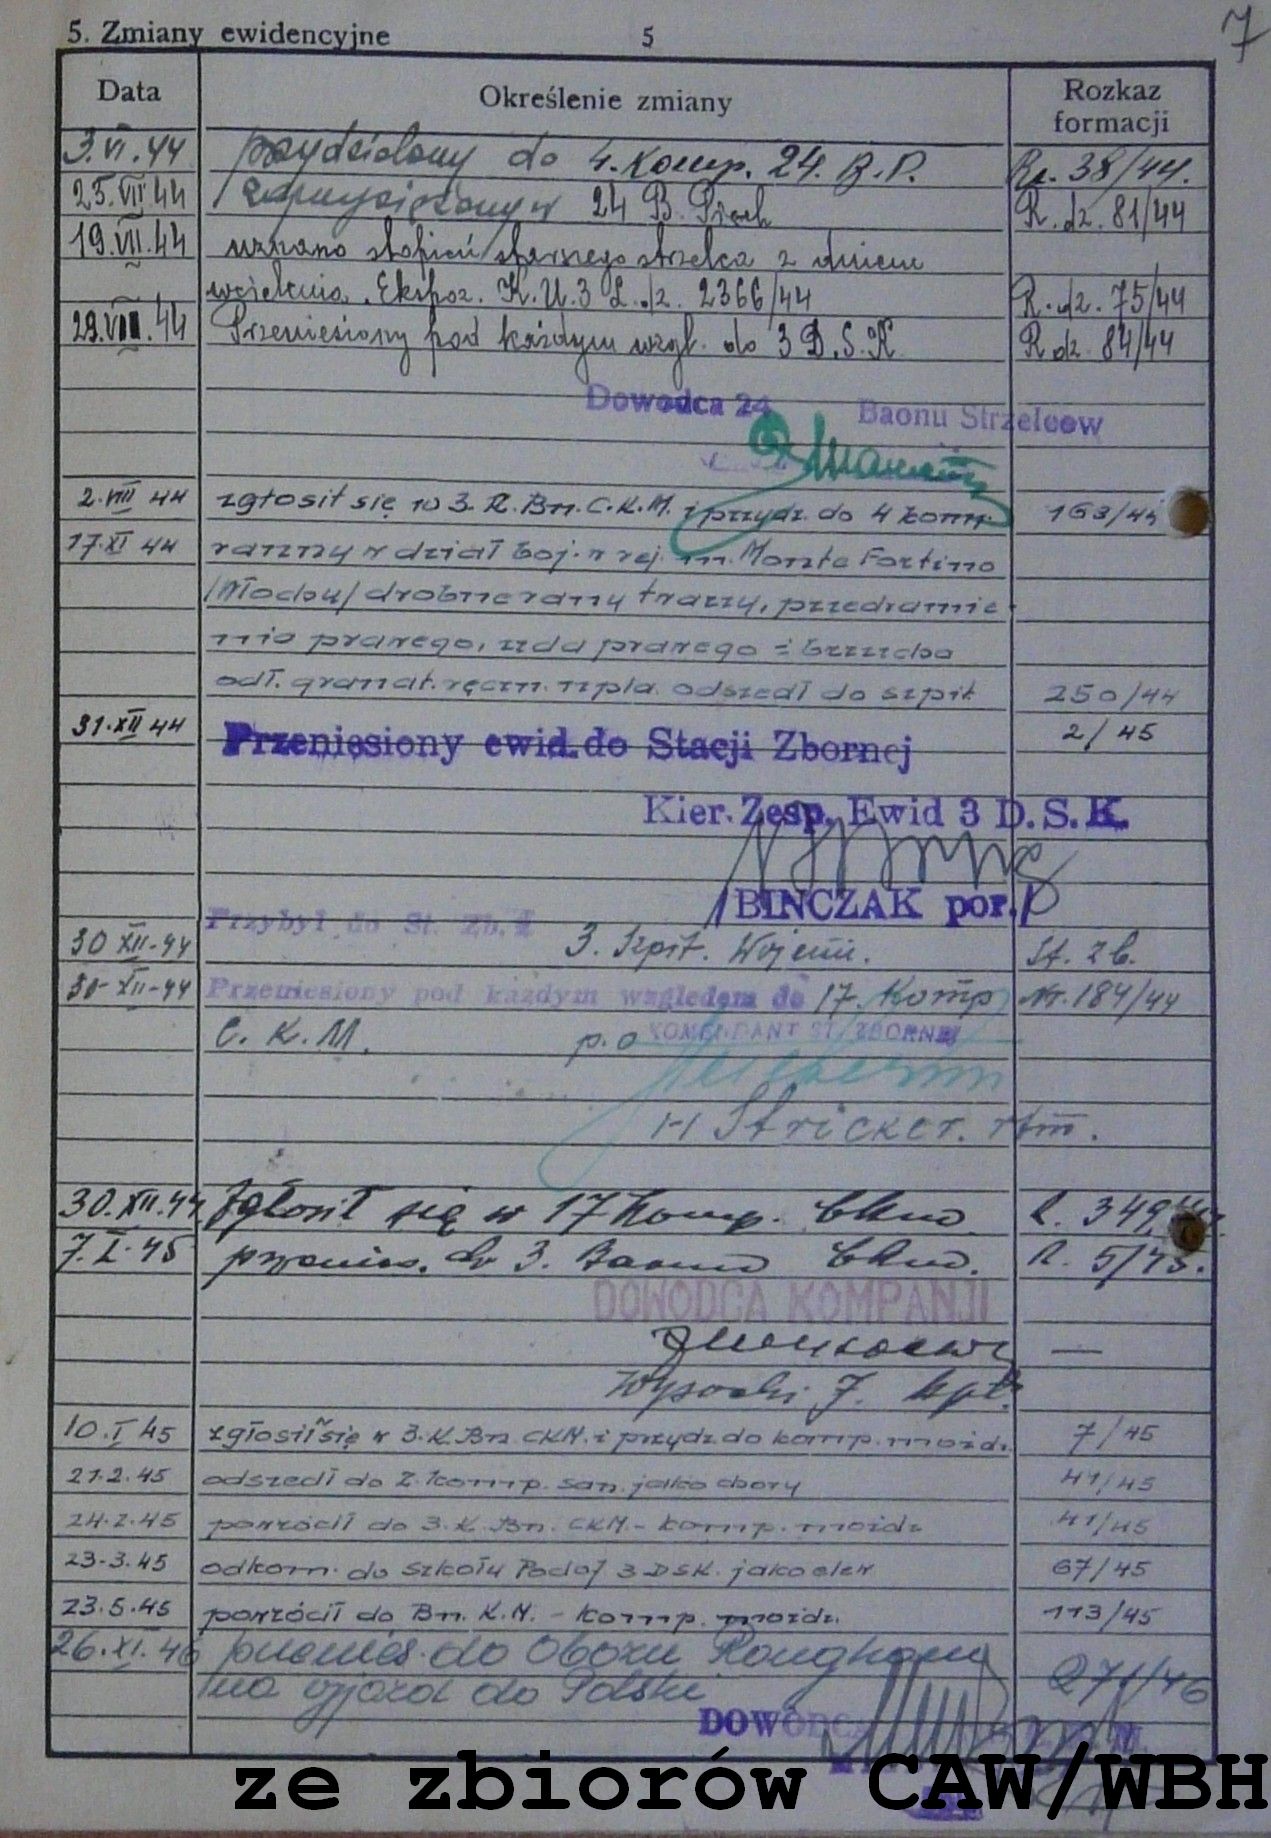 7
5. Zmiany ewidencyjne 5
Data Określenie zmiany Rozkaz formacji
3.VI.44 przydzielony do 4. Komp. 24. B.P. Rz. 38/44.
25.VII 44 zaprzysiężony w 24 B. Piech R. dz. 81/44
19.VII.44 uznano stopień starszego strzelca z dniem
wcielenia. Ekspoz. K.U.3 L.dz. 2366/44 R. dz. 75/44
29.VIII.44 Przeniesiony pod każdym wzgl. do 3 D.S.K R dz. 84/44
Dowodca 24 Baonu Strzelcow
2.VIII 44 zgłosił się w 3. K. Bn. C.K.M. i przydz. do 4 komp. 163/44
17.XI 44 ranny w dział boj. w rej. m. Monte Fortino
/Włochy/ drobne rany twarzy, przedramie
nia prawego, uda prawego i brzucha
odł. granat. ręczn. npla. odszedł do szpit. 250/44
31.XII 44 Przeniesiony ewid. do Stacji Zbornej 2/45
Kier. Zesp. Ewid 3 D.S.K.
/BINCZAK por./
Przybył do St. Zb. z
30 XII-44 3. Szpit. Wojenn. St. zb.
30-XII-44 Przeniesiony pod każdym względem do 17. Komp Nr. 184/44
C. K. M. p.o KOMENDANT ST. ZBORNEJ
H Stricker. rtm.
30.XII.44 Zgłosił się w 17 Komp. Ckm. R. 349/44
7.I.45 przenies. do 3. Baonu Ckm. R. 5/45.
DOWODCA KOMPANJI
Wysocki J. kpt. —
10.I 45 zgłosił się w 3.K.Bn CKM. i przydz. do komp. moźdz. 7/45
21.2.45 odszedł do 2. komp. san. jako chory 41/45
24.2.45 powrócił do 3.K.Bn. CKM. - komp. moźdz 41/45
23.3.45 odkom. do szkoły Podof 3 DSK. jako elew 67/45
23.5.45 powrócił do Bn. K.M. - komp. moździ. 113/45
26.XI.46 przenies. do Obozu Rougham
na wyjazd do Polski 271/46
DOWODCA
ze zbiorów CAW/WBH